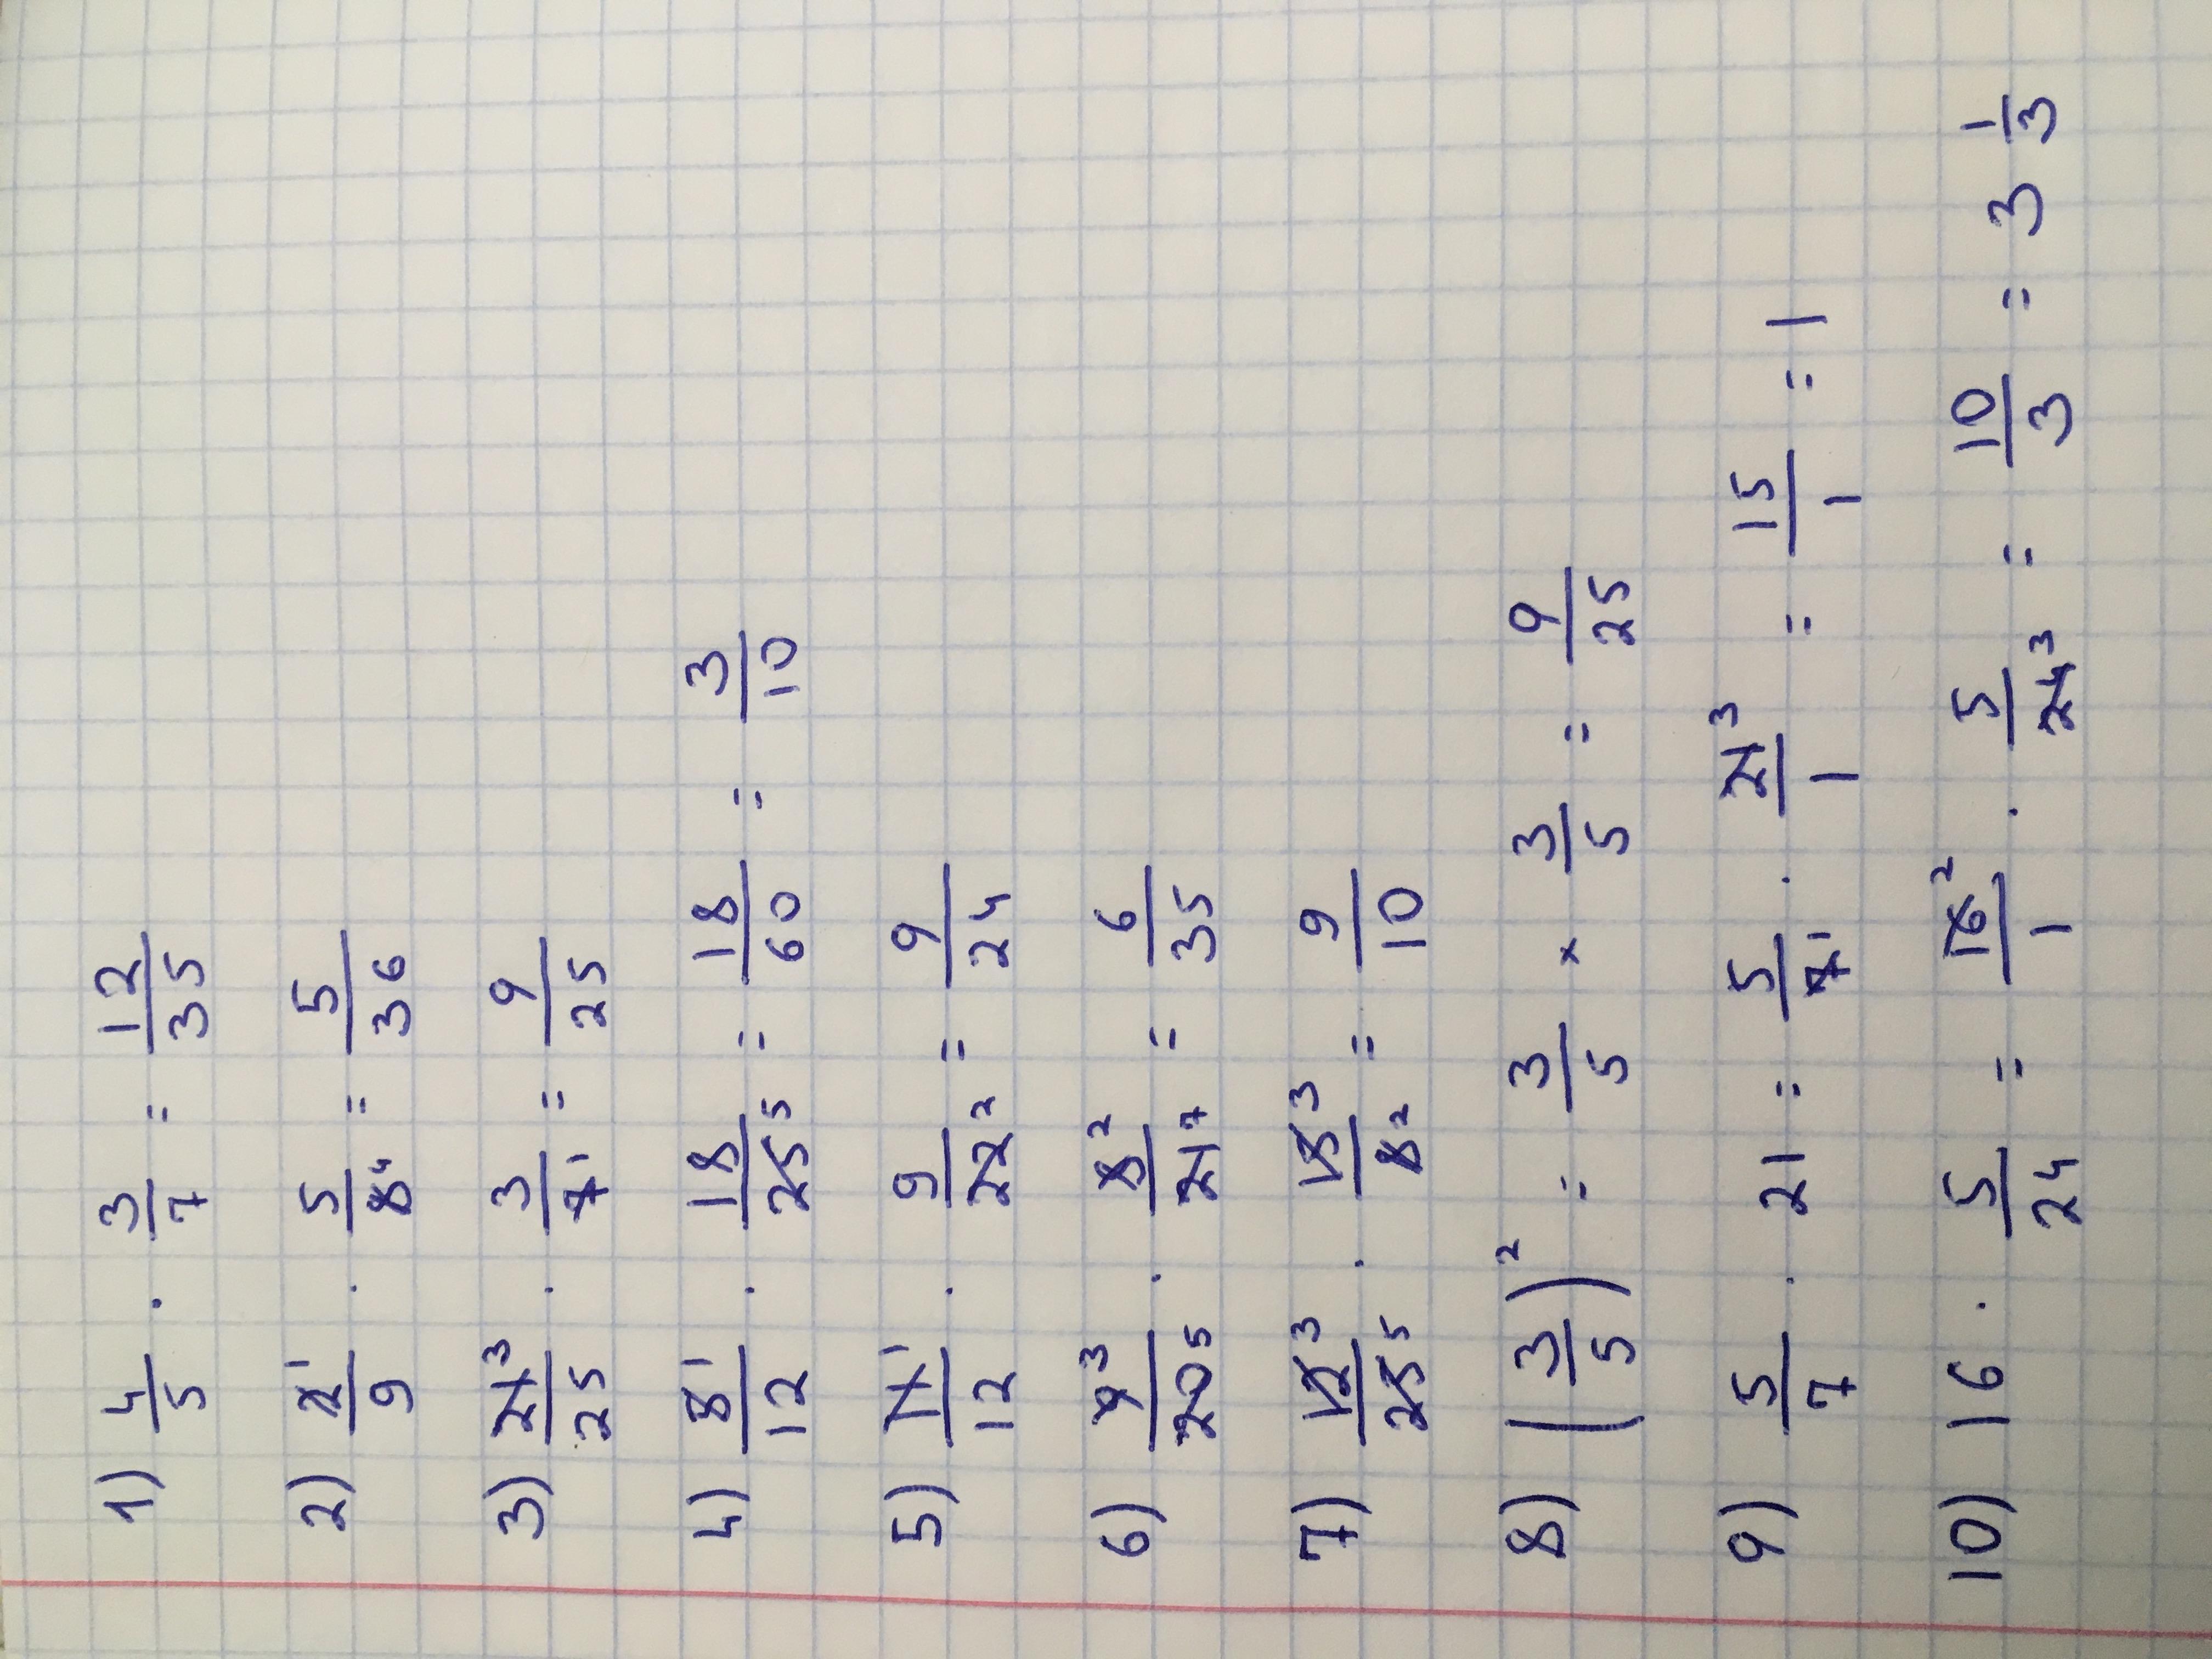 1) 4/5 · 3/7 = 12/35
2) 2¹/9 · 5/8⁴ = 5/36
3) 21³/25 · 3/7¹ = 9/25
4) 5¹/12 · 18/25⁵ = 18/60 = 3/10
5) 11¹/12 · 9/22² = 9/24
6) 9³/20⁵ · 8²/21⁷ = 6/35
7) 12³/25⁵ · 15³/8² = 9/10
8) (3/5)² = 3/5 × 3/5 = 9/25
9) 5/7 · 21 = 5/7¹ · 21³/1 = 15/1 = 1
10) 16 · 5/24 = 16²/1 · 5/24³ = 10/3 = 3 1/3